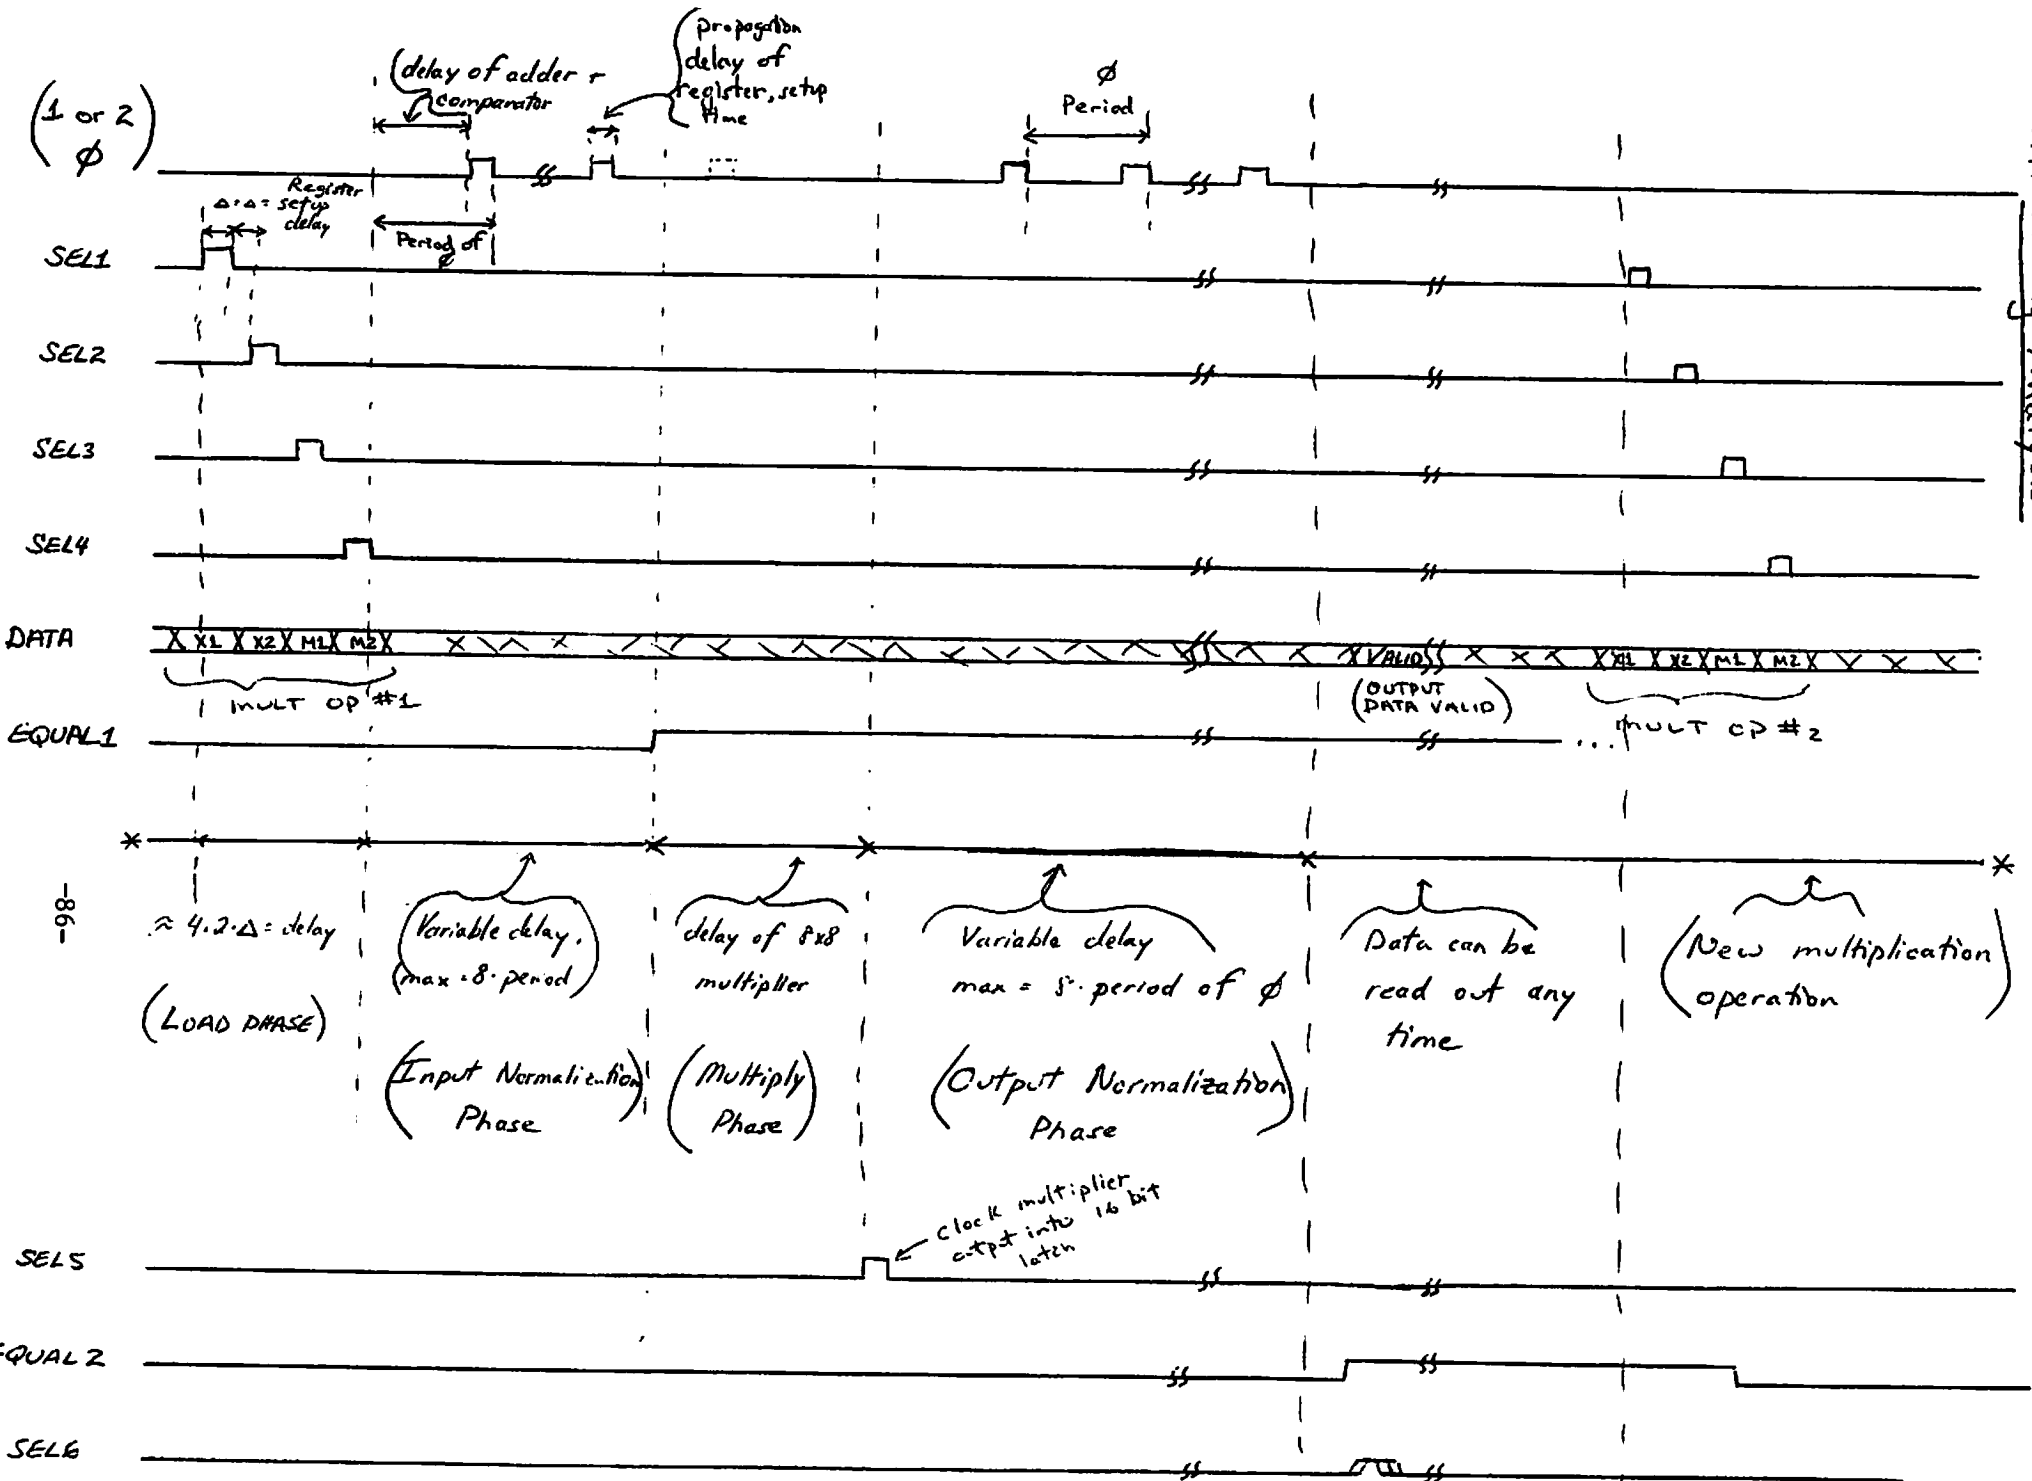 (1 or 2)
ϕ
(delay of adder +
comparator
(propagation
delay of
register, setup
time
ϕ
Period
Register
Δ·Δ = setup
delay
Period of
ϕ
SEL1
SEL2
SEL3
SEL4
DATA
X1 X2 M1 M2
VALID
X1 X2 M1 M2
MULT OP #1
(OUTPUT
DATA VALID)
MULT OP #2
EQUAL1
...
-86-
≈ 4·2·Δ = delay
(LOAD PHASE)
(Variable delay,
max = 8·period)
(Input Normalization
Phase)
delay of 8x8
multiplier
(Multiply
Phase)
Variable delay
max = · period of ϕ
(Output Normalization
Phase)
Data can be
read out any
time
(New multiplication
operation)
clock multiplier
output into 16 bit
latch
SEL5
EQUAL2
SEL6